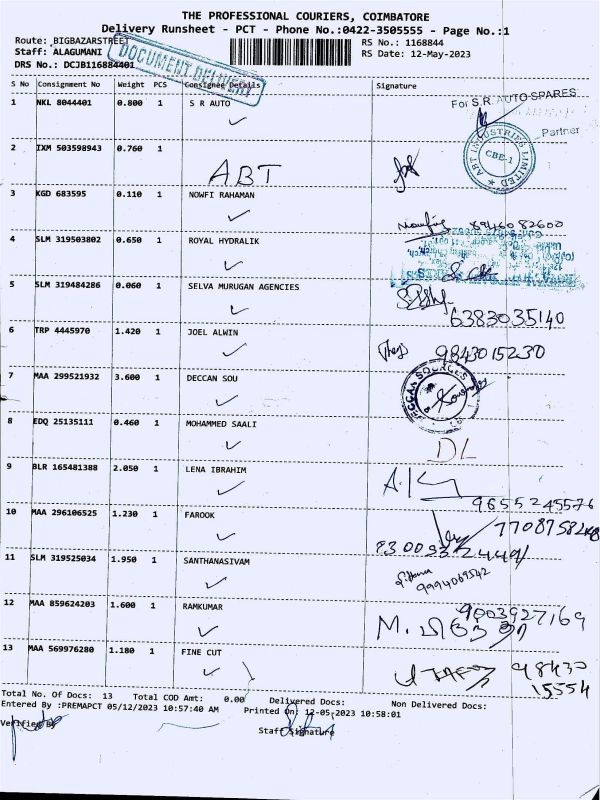 THE PROFESSIONAL COURIERS, COIMBATORE
Delivery Runsheet - PCT - Phone No.:0422-3505555 - Page No.:1
Route: BIGBAZARSTREET
RS No.: 1168844
Staff: ALAGUMANI
RS Date: 12-May-2023
DRS No.: DCJB116884401
DOCUMENT DELIVERY
S No Consignment No Weight PCS Consignee Details Signature
1 NKL 8044401 0.800 1 S R AUTO
For S.R. AUTO SPARES
Partner
2 IXM 503598943 0.760 1
ABT
ABT INDUSTRIES LIMITED
CBE-1
3 KGD 683595 0.110 1 NOWFI RAHAMAN
8946082600
4 SLM 319503802 0.650 1 ROYAL HYDRALIK
5 SLM 319484286 0.060 1 SELVA MURUGAN AGENCIES
6383035140
6 TRP 4445970 1.420 1 JOEL ALWIN
9843015230
7 MAA 299521932 3.600 1 DECCAN SOU
DECCAN SOURCES
8 EDQ 25135111 0.460 1 MOHAMMED SAALI
DL
9 BLR 165481388 2.050 1 LENA IBRAHIM
9655245576
10 MAA 296106525 1.230 1 FAROOK
11 SLM 319525034 1.950 1 SANTHANASIVAM
9994069542
12 MAA 859624203 1.600 1 RAMKUMAR
9003927169
13 MAA 569976280 1.180 1 FINE CUT
98430
15554
Total No. Of Docs: 13 Total COD Amt: 0.00 Delivered Docs: Non Delivered Docs:
Entered By :PREMAPCT 05/12/2023 10:57:40 AM Printed On: 12-05-2023 10:58:01
Verified By
Staff Signature